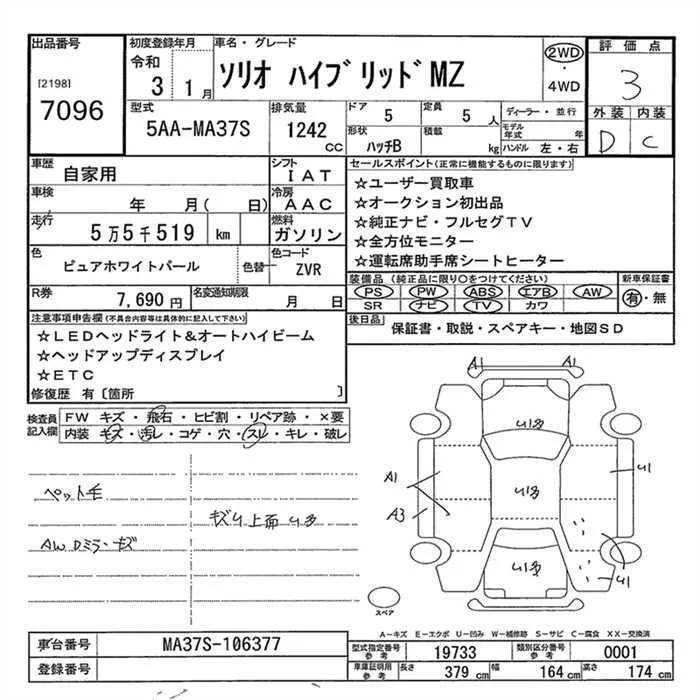 出品番号
[2198]
7096
初度登録年月
令和
3 1月
車名・グレード
ソリオ ハイブリッドMZ
2WD
・
4WD
評価点
3
外装 内装
D C
型式
5AA-MA37S
排気量
1242
CC
ドア
5
定員
5 人
形状
ハッチB
積載
kg
ディーラー・並行
モデル年式 年
ハンドル 左・右
車歴
自家用
シフト
IAT
車検
年 月( 日)
冷房
AAC
走行
5万5千519 km
燃料
ガソリン
色
ピュアホワイトパール
色替
カラーコード
ZVR
R券
7,690円
名変通知期限
月 日
セールスポイント(正常に機能するものに限ります)
☆ユーザー買取車
☆オークション初出品
☆純正ナビ・フルセグTV
☆全方位モニター
☆運転席助手席シートヒーター
装備品(純正品に限り〇をつけてください)
新車保証書
PS PW ABS エアB AW
SR ナビ TV カワ
有・無
後日品
保証書・取説・スペアキー・地図SD
注意事項申告欄(不具合内容等は具体的に記入して下さい)
☆LEDヘッドライト&オートハイビーム
☆ヘッドアップディスプレイ
☆ETC
修復歴 有〔箇所 〕
検査員記入欄
FW キズ・飛石・ヒビ割・リペア跡・×要
内装 キズ・汚レ・コゲ・穴・スレ・キレ・破レ
ペット毛
AW Dミラーキズ
キズU上面U多
A1
A1
U多
A1
A3
U多
U1
U多
U1
スペア
A-キズ E-エクボ U-凹み W-補修跡 S-サビ C-腐食 XX-交換済
車台番号
MA37S-106377
登録番号
型式指定番号
参考
19733
類別区分番号
参考
0001
車庫証明用
参考
長さ 379 cm
幅 164 cm
高さ 174 cm